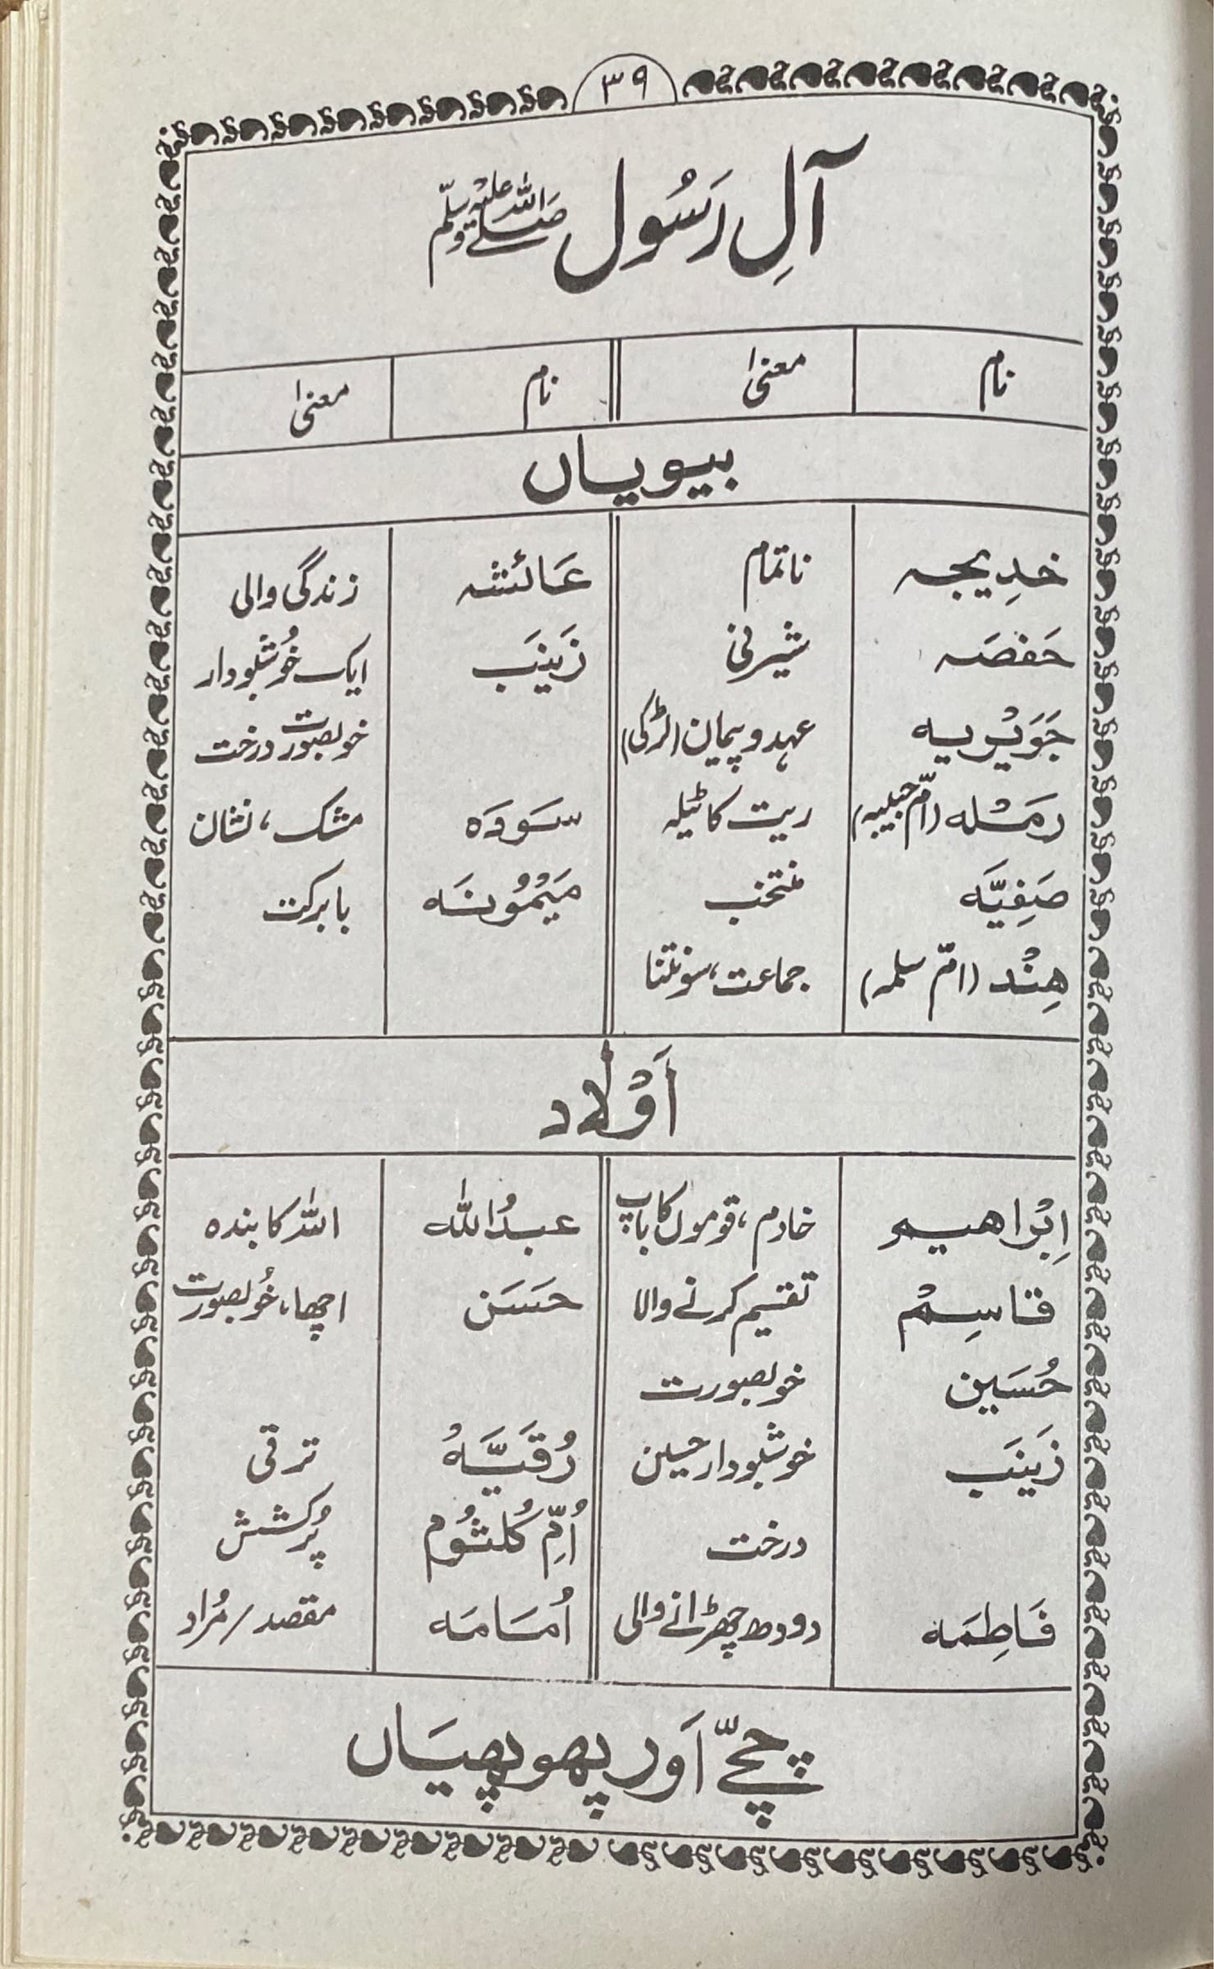 ۳۹
آلِ رَسُول صَلَّی اللہُ عَلَیْہِ وَسَلَّم
نام معنیٰ نام معنیٰ
بیویاں
خدِیجہ ناتمام عَائشہ زندگی والی
حَفصَہ شیرنی زَینَب ایک خُوشبودار
جَوَیْرِیہ عہد و پیمان (لڑکی) خوبصورت درخت
رَمْلہ (اُمّ حبیبہ) ریت کا ٹیلہ سَودَہ مشک، نشان
صَفِیَّہ منتخب مَیْمُونَہ بابرکت
هِنْد (امّ سلمہ) جماعت، سونتنا
اَوْلَاد
اِبْراهیم خادم، قوموں کا باپ عبدُاللہ اللہ کا بندہ
قاسِمْ تقسیم کرنے والا حَسَن اچھا، خُوبصورت
حُسَین خوبصورت
زَینَب خوشبودار حسین رُقَیَّہ ترقی
درخت اُمِّ کُلثُوم پُرکشش
فَاطِمَہ دودھ چھڑانے والی اُمَامَہ مقصد/مُراد
چچّے اَور پھوپھیَاں